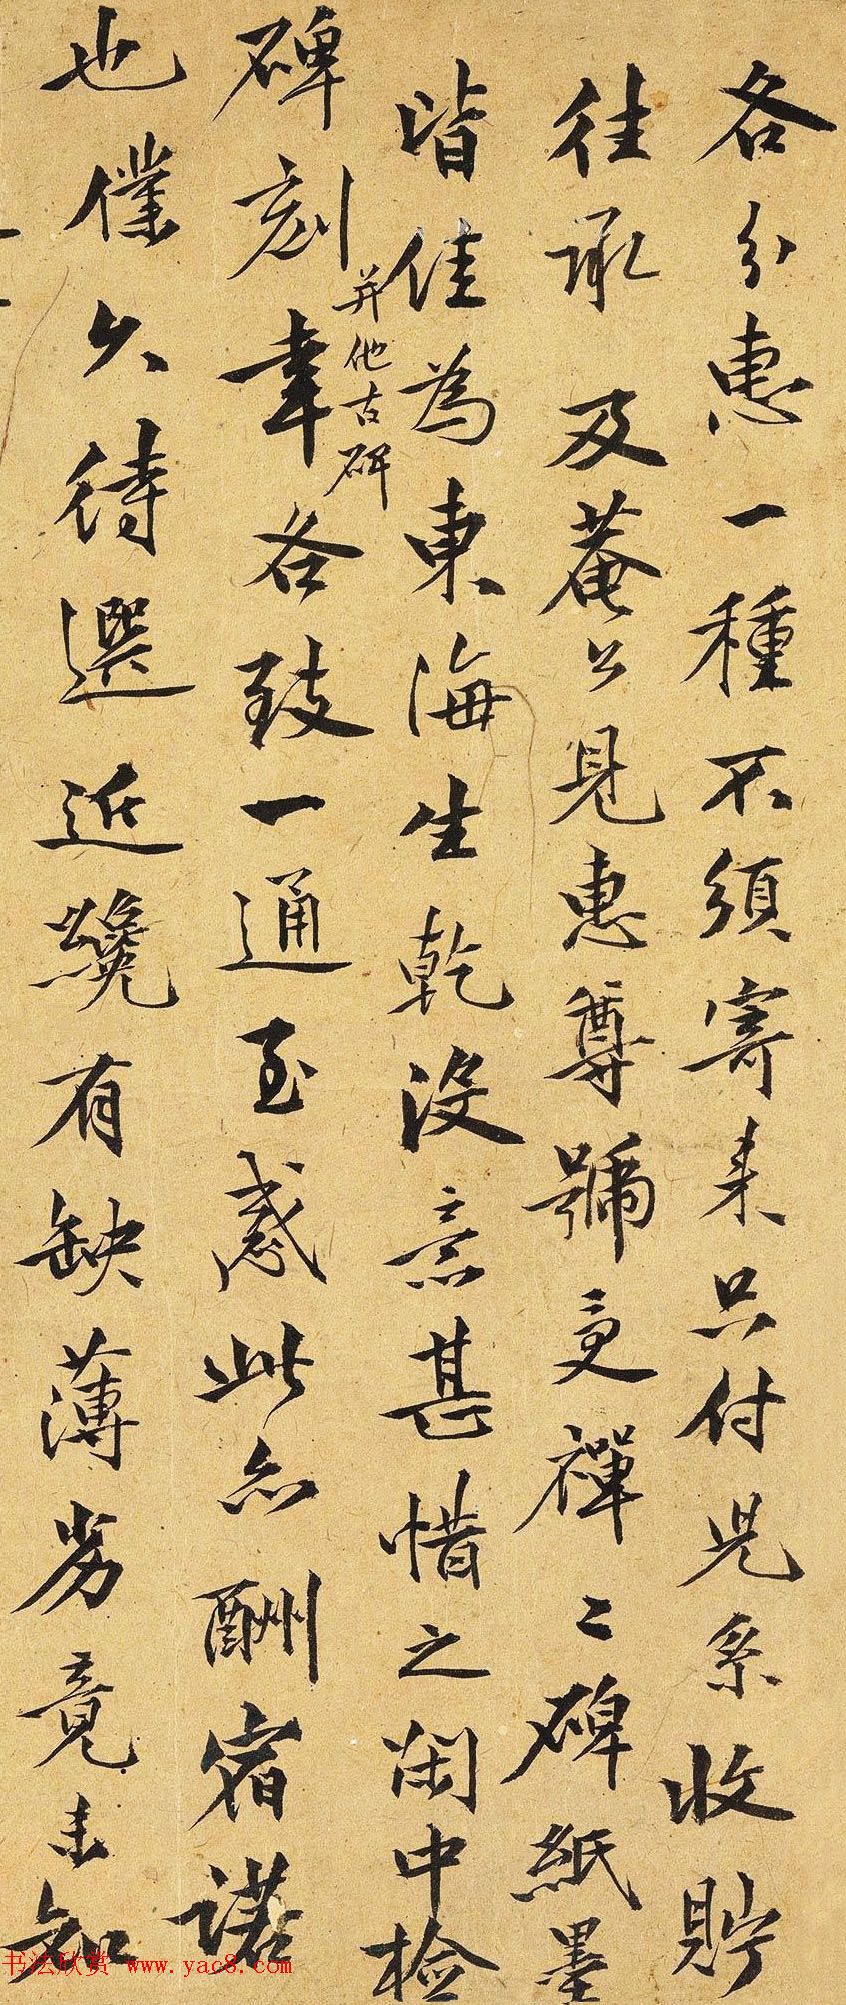 各分惠一種不須寄来只付兒系收貯
往承及菴公見惠尊號受禪二碑紙墨
皆佳為東海生乾没意甚惜之閑中檢
碑刻幸各致一通至感此亦酬宿諾
并他古碑
也僕久待選近纔有缺薄劣竟未知
书法欣赏 www.yac8.com